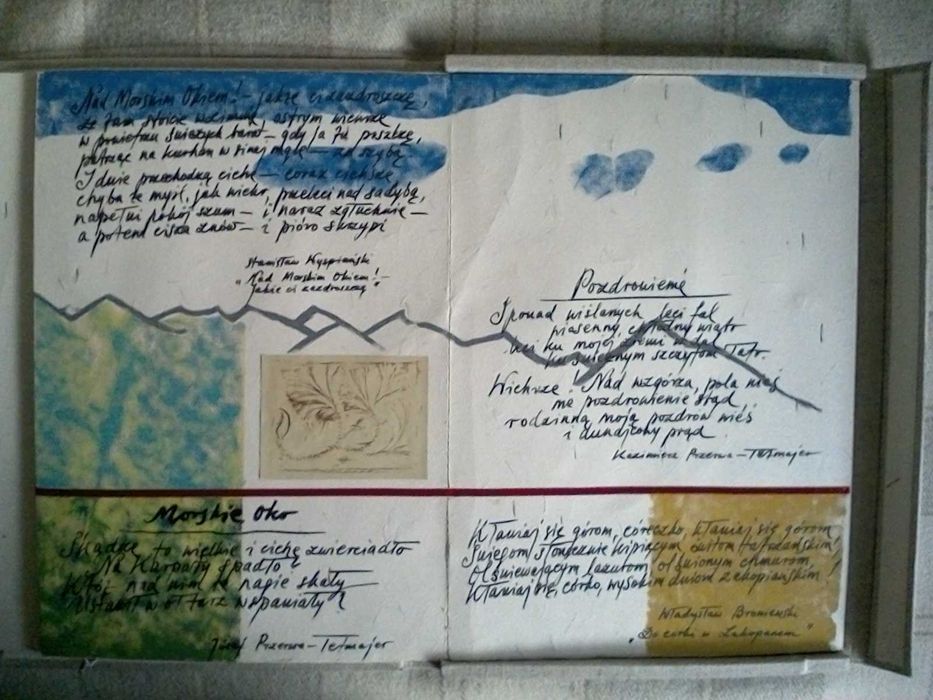 Nad Morskim Okiem! – jakże ci zazdroszczę,
że tam stoisz ostrym wichrze
w powietrzu świeżych barw – gdy ja tu poszczę,
patrząc na kurhan w sinej mgle – za szybą
I dnie przechodzą ciche – coraz cichsze
chyba że myśl, jak wicher, przeleci nad sadybą,
napełni pokój szum – i naraz zgłuchnie –
a potem cisza znów – i pióro skrzypi
Stanisław Wyspiański
"Nad Morskim Okiem! –
Jakże ci zazdroszczę"
Pozdrowienie
Sponad wiślanych leci fal
wiosenny, chłodny wiatr
leci ku mojej ziemi w dal
ku śnieżnym szczytom Tatr.
Wichrze! Nad wzgórza, pola nieś
me pozdrowienie stąd,
rodzinną moją pozdrów wieś
i dunajcowy prąd.
Kazimierz Przerwa-Tetmajer
Morskie Oko
Skądże to wielkie i ciche zwierciadło
Na Karpaty spadło?
Któż nad nim te napie skały
Ustawił w ołtarz wspaniały?
Józef Przerwa-Tetmajer
Kłaniaj się górom, córeczko, kłaniaj się górom,
Śniegom słonecznie kipiącym, świtom tatrzańskim,
Olśniewającym lazurom, olśnionym chmurom,
Kłaniaj się, córko, wysokim dniom zakopiańskim!
Władysław Broniewski
"Do córki w Zakopanem"